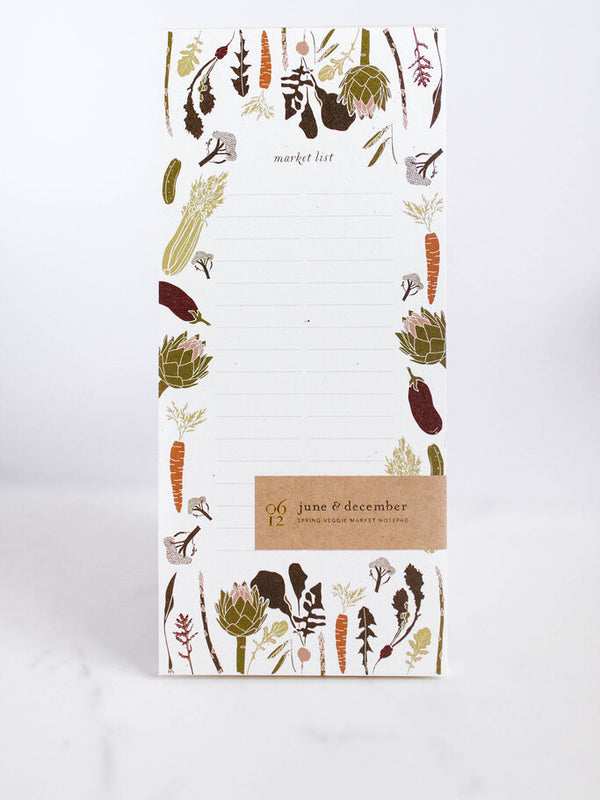 market list
06
12
june & december
SPRING VEGGIE MARKET NOTEPAD